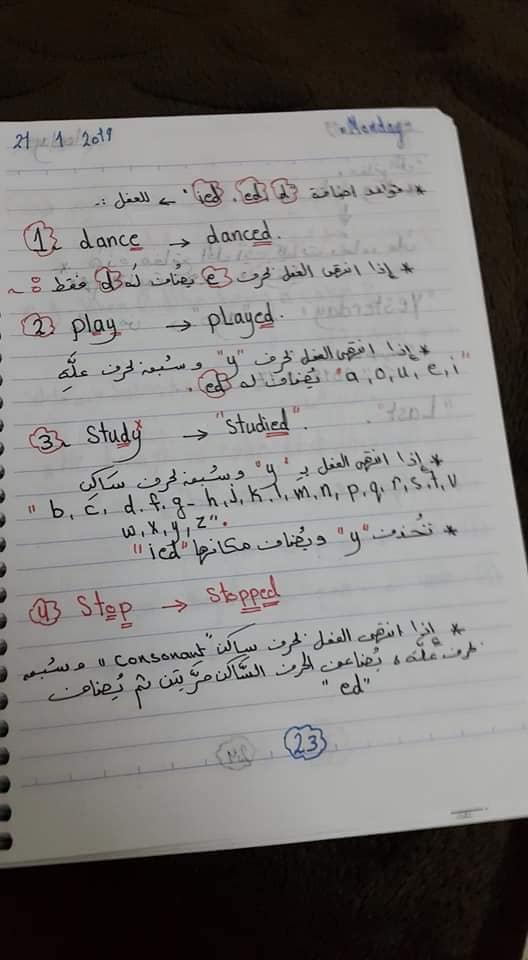 21 1 2019 Monday
* قواعد اضافة "ied, ed, d" للفعل :.
1 dance → danced.
* إذا انتهى الفعل بحرف e يُضاف له d فقط :
2 play → played.
* إذا انتهى الفعل بحرف "y" وسُبق بحرف علَّةِ
"a, o, u, e, i" يُضاف له ed.
3 study → "studied".
* إذا انتهى الفعل بـ "y" وسُبق بحرف ساكن
"b, c, d, f, g - h, j, k, l, m, n, p, q, r, s, t, v
w, x, y, z".
* تُحذف "y" ويُضاف مكانها "ied"
4 Stop → Stopped
* إذا انتهى الفعل بحرف ساكن "consonant" وسُبق
بحرف علَّة، يُضاعف الحرف السَّاكن مرَّتين ثم يُضاف
"ed"
23